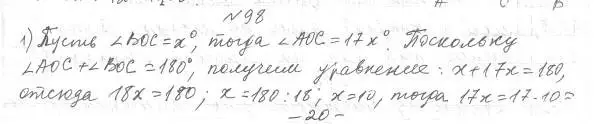 №98
1) Пусть ∠BOC = x°, тогда ∠AOC = 17x°. Поскольку
∠AOC + ∠BOC = 180°, получем уравнение: x + 17x = 180,
отсюда 18x = 180; x = 180 : 18; x = 10, тогда 17x = 17·10 =
- 20 -